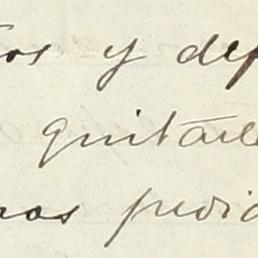 os y def
quitarl
nos pedia